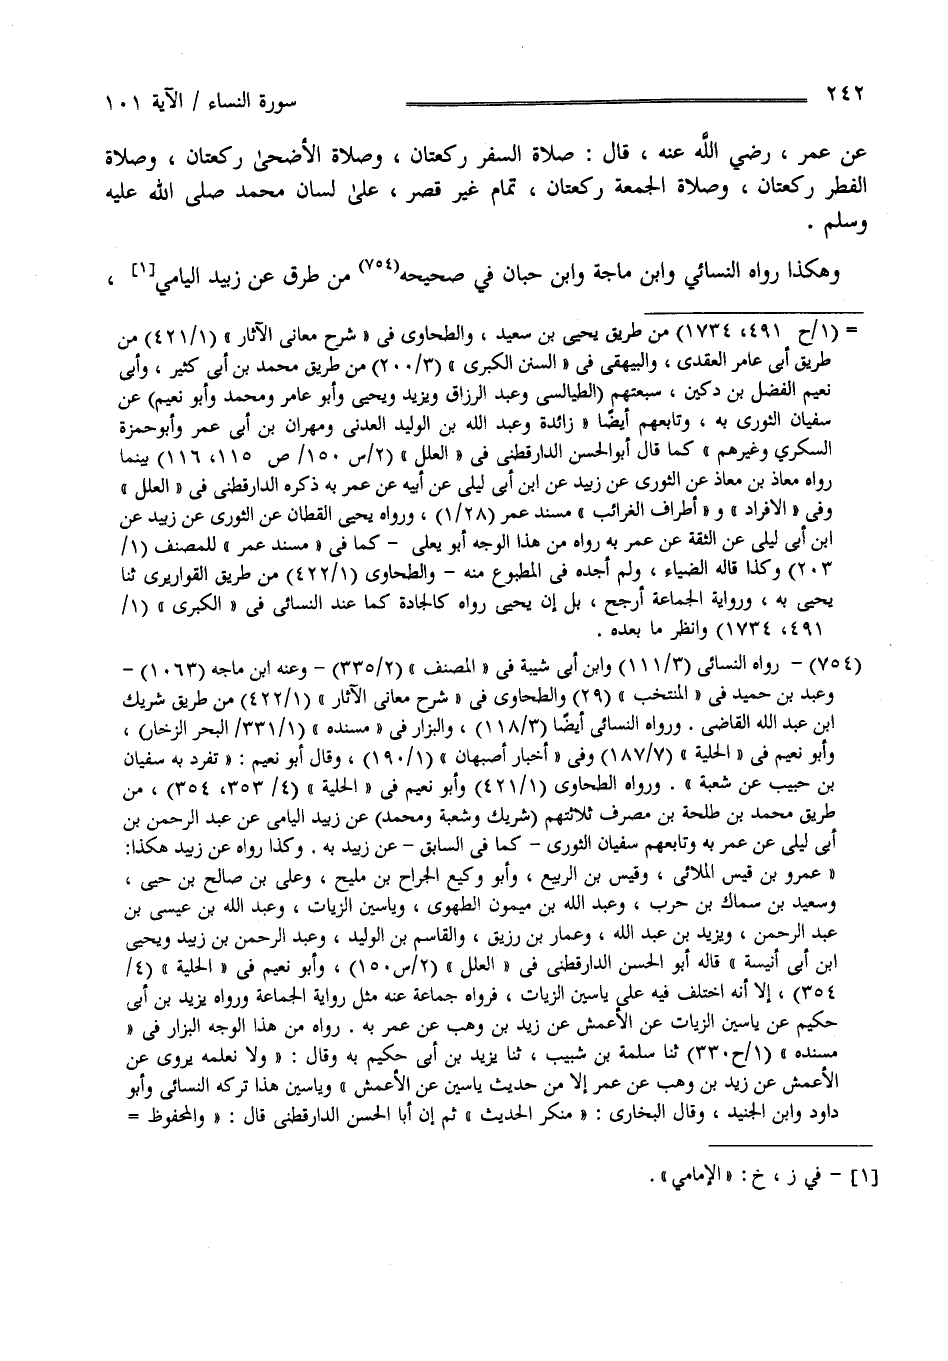 ٢٤٢ سورة النساء / الآية ١٠١
عن عمر ، رضي اللَّه عنه ، قال : صلاة السفر ركعتان ، وصلاة الأضحىٰ ركعتان ، وصلاة
الفطر ركعتان ، وصلاة الجمعة ركعتان ، تمام غير قصر ، علىٰ لسان محمد صلى الله عليه
وسلم .
وهكذا رواه النسائي وابن ماجة وابن حبان في صحيحه(٧٥٤) من طرق عن زبيد اليامي[١] ،
= (١/ح ٤٩١، ١٧٣٤) من طريق يحيى بن سعيد ، والطحاوى فى « شرح معانى الآثار » (٤٢١/١) من
طريق أبى عامر العقدى ، والبيهقى فى « السنن الكبرى » (٢٠٠/٣) من طريق محمد بن أبى كثير ، وأبى
نعيم الفضل بن دكين ، سبعتهم (الطيالسى وعبد الرزاق ويزيد ويحيى وأبو عامر ومحمد وأبو نعيم) عن
سفيان الثورى به ، وتابعهم أيضًا « زائدة وعبد الله بن الوليد العدنى ومهران بن أبى عمر وأبوحمزة
السكري وغيرهم » كما قال أبوالحسن الدارقطنى فى « العلل » (٢/س ١٥٠/ ص ١١٥، ١١٦) بينما
رواه معاذ بن معاذ عن الثورى عن زبيد عن ابن أبى ليلى عن أبيه عن عمر به ذكره الدارقطنى فى « العلل »
وفى « الافراد » و « أطراف الغرائب » مسند عمر (١/٢٨) ، ورواه يحيى القطان عن الثورى عن زبيد عن
ابن أبى ليلى عن الثقة عن عمر به رواه من هذا الوجه أبو يعلى - كما فى « مسند عمر » للمصنف (١/
٢٠٣) وكذا قاله الضياء ، ولم أجده فى المطبوع منه - والطحاوى (٤٢٢/١) من طريق القواريرى ثنا
يحيى به ، ورواية الجماعة أرجح ، بل إن يحيى رواه كالجادة كما عند النسائى فى « الكبرى » (١/
٤٩١، ١٧٣٤) وانظر ما بعده .
(٧٥٤) - رواه النسائى (١١١/٣) وابن أبى شيبة فى « المصنف » (٣٣٥/٢) - وعنه ابن ماجه (١٠٦٣) -
وعبد بن حميد فى « المنتخب » (٢٩) والطحاوى فى « شرح معانى الآثار » (٤٢٢/١) من طريق شريك
ابن عبد الله القاضى . ورواه النسائى أيضًا (١١٨/٣) ، والبزار فى « مسنده » (٣٣١/١/ البحر الزخار) ،
وأبو نعيم فى « الحلية » (١٨٧/٧) وفى « أخبار أصبهان » (١٩٠/١) ، وقال أبو نعيم : « تفرد به سفيان
بن حبيب عن شعبة » . ورواه الطحاوى (٤٢١/١) وأبو نعيم فى « الحلية » (٤/ ٣٥٣، ٣٥٤) ، من
طريق محمد بن طلحة بن مصرف ثلاثتهم (شريك وشعبة ومحمد) عن زبيد اليامى عن عبد الرحمن بن
أبى ليلى عن عمر به وتابعهم سفيان الثورى - كما فى السابق - عن زبيد به . وكذا رواه عن زبيد هكذا:
« عمرو بن قيس الملائى ، وقيس بن الربيع ، وأبو وكيع الجراح بن مليح ، وعلى بن صالح بن حيى ،
وسعيد بن سماك بن حرب ، وعبد الله بن ميمون الطهوى ، وياسين الزيات ، وعبد الله بن عيسى بن
عبد الرحمن ، ويزيد بن عبد الله ، وعمار بن رزيق ، والقاسم بن الوليد ، وعبد الرحمن بن زبيد ويحيى
ابن أبى أنيسة » قاله أبو الحسن الدارقطنى فى « العلل » (٢/س١٥٠) ، وأبو نعيم فى « الحلية » (٤/
٣٥٤) ، إلا أنه اختلف فيه على ياسين الزيات ، فرواه جماعة عنه مثل رواية الجماعة ورواه يزيد بن أبى
حكيم عن ياسين الزيات عن الأعمش عن زيد بن وهب عن عمر به . رواه من هذا الوجه البزار فى «
مسنده » (١/ح٣٣٠) ثنا سلمة بن شبيب ، ثنا يزيد بن أبى حكيم به وقال : « ولا نعلمه يروى عن
الأعمش عن زيد بن وهب عن عمر إلا من حديث ياسين عن الأعمش » وياسين هذا تركه النسائى وأبو
داود وابن الجنيد ، وقال البخارى : « منكر الحديث » ثم إن أبا الحسن الدارقطنى قال : « والمحفوظ =
[١] - في ز ، خ : « الإمامي » .